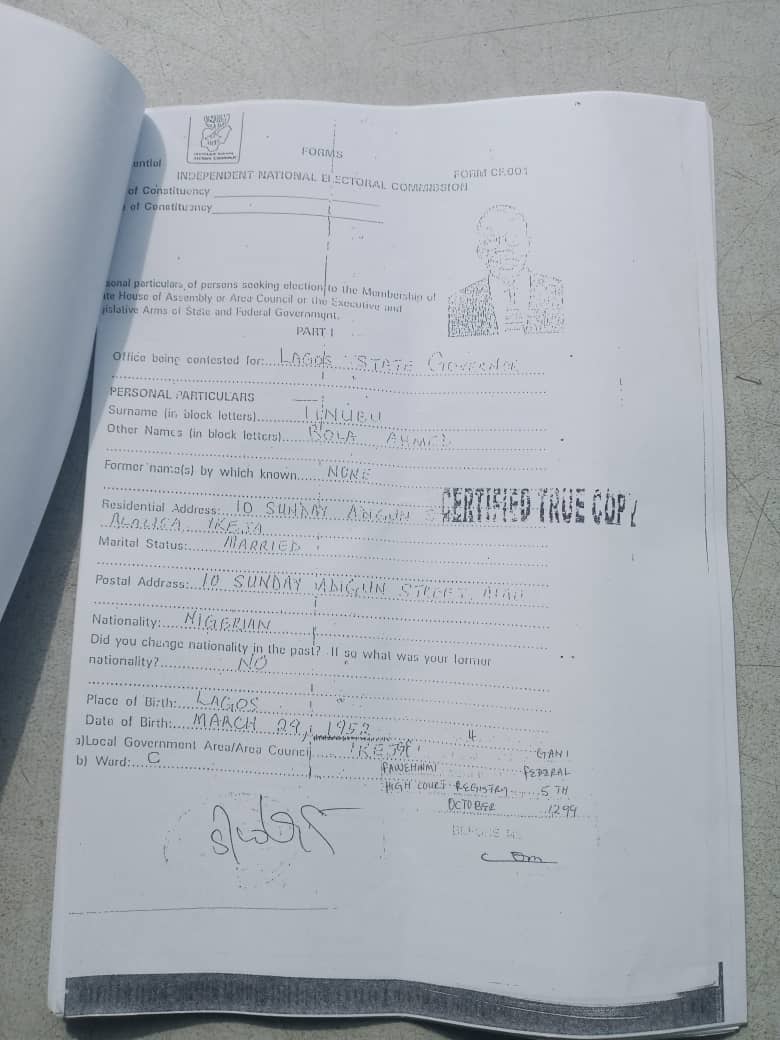 FORMS
ential
FORM CF.001
INDEPENDENT NATIONAL ELECTORAL COMMISSION
of Constituency
of Constituency
sonal particulars of persons seeking election to the Membership of
te House of Assembly or Area Council or the Executive and
gislative Arms of State and Federal Government.
PART I
Office being contested for: LAGOS STATE GOVERNOR
PERSONAL PARTICULARS
Surname (in block letters) TINUBU
Other Names (in block letters) BOLA AHMED
Former name(s) by which known NONE
Residential Address: 10 SUNDAY
CERTIFIED TRUE COPY
IKEJA
Marital Status: MARRIED
Postal Address: 10 SUNDAY STREET
Nationality: NIGERIAN
Did you change nationality in the past? If so what was your former
nationality? NO
Place of Birth: LAGOS
Date of Birth: MARCH 29, 1952
a)Local Government Area/Area Council IKEJA
GANI
b) Ward: C
FAWEHINMI
FEDERAL
HIGH COURT REGISTRY 5TH
OCTOBER 1299